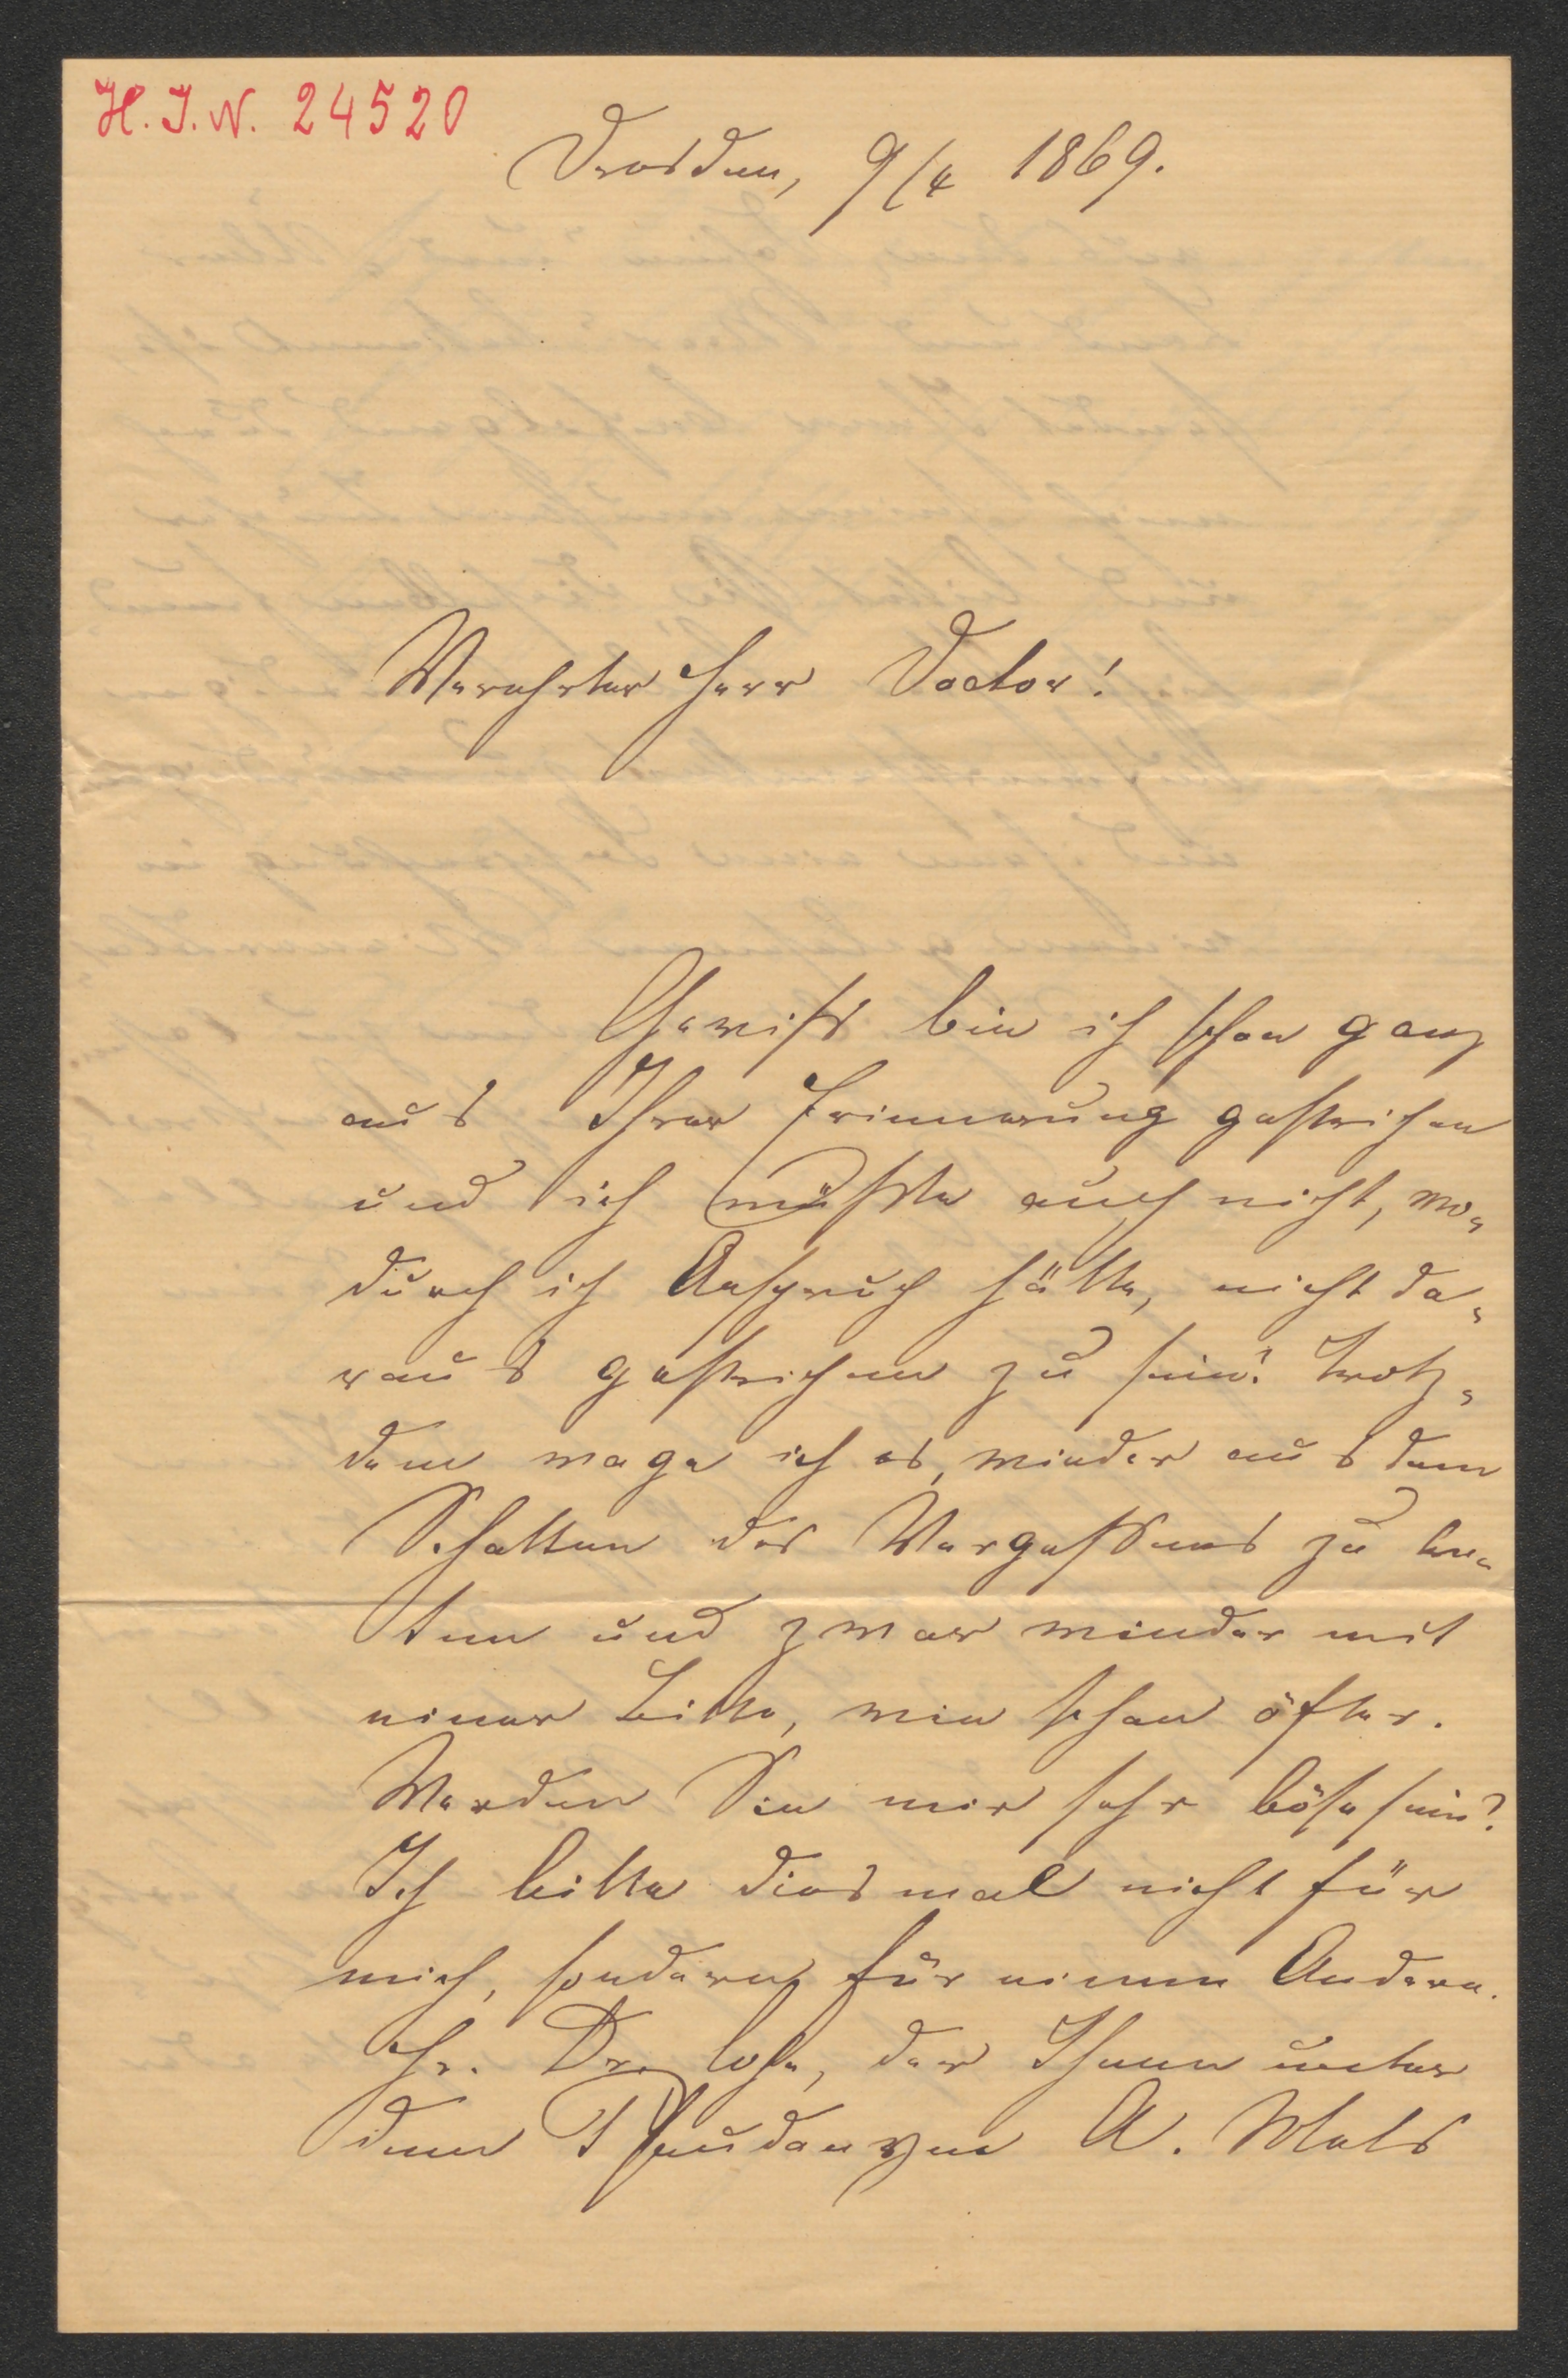 H. I. N. 24520
Dresden, 9/4 1869.
Verehrter Herr Doctor!
Gewiß bin ich schon ganz
aus Ihrer Erinnerung gestrichen
und ich wüßte auch nicht, wo-
durch ich Anspruch hätte, nicht da-
raus gestrichen zu sein! Trotz-
dem wage ich es, wieder aus dem
Schatten des Vergessens zu tre-
ten und zwar wieder mit
einer Bitte, wie schon öfter.
Werden Sie mir sehr böse sein?
Ich bitte diesmal nicht für
mich, sondern für einen Andern.
Hr. Dr. Lohse, der Ihnen unter
dem Pseudonym A. Mels